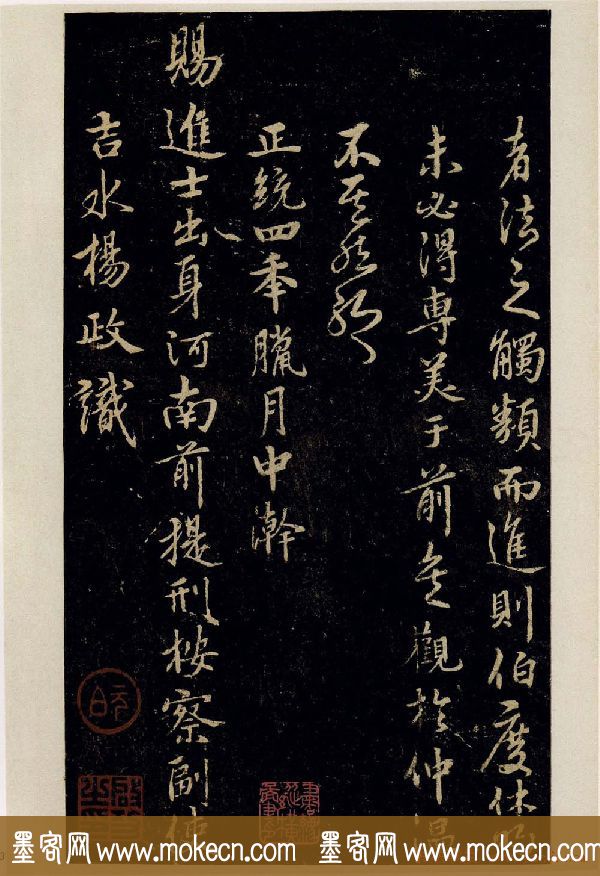 者法之觸類而進則伯度休明
未必得專美于前矣觀於仲温
不其然耶
正統四年臘月中澣
賜進士出身河南前提刑按察副使
吉水楊政識
墨客网 www.mokecn.com 墨客网 www.mokecn.com